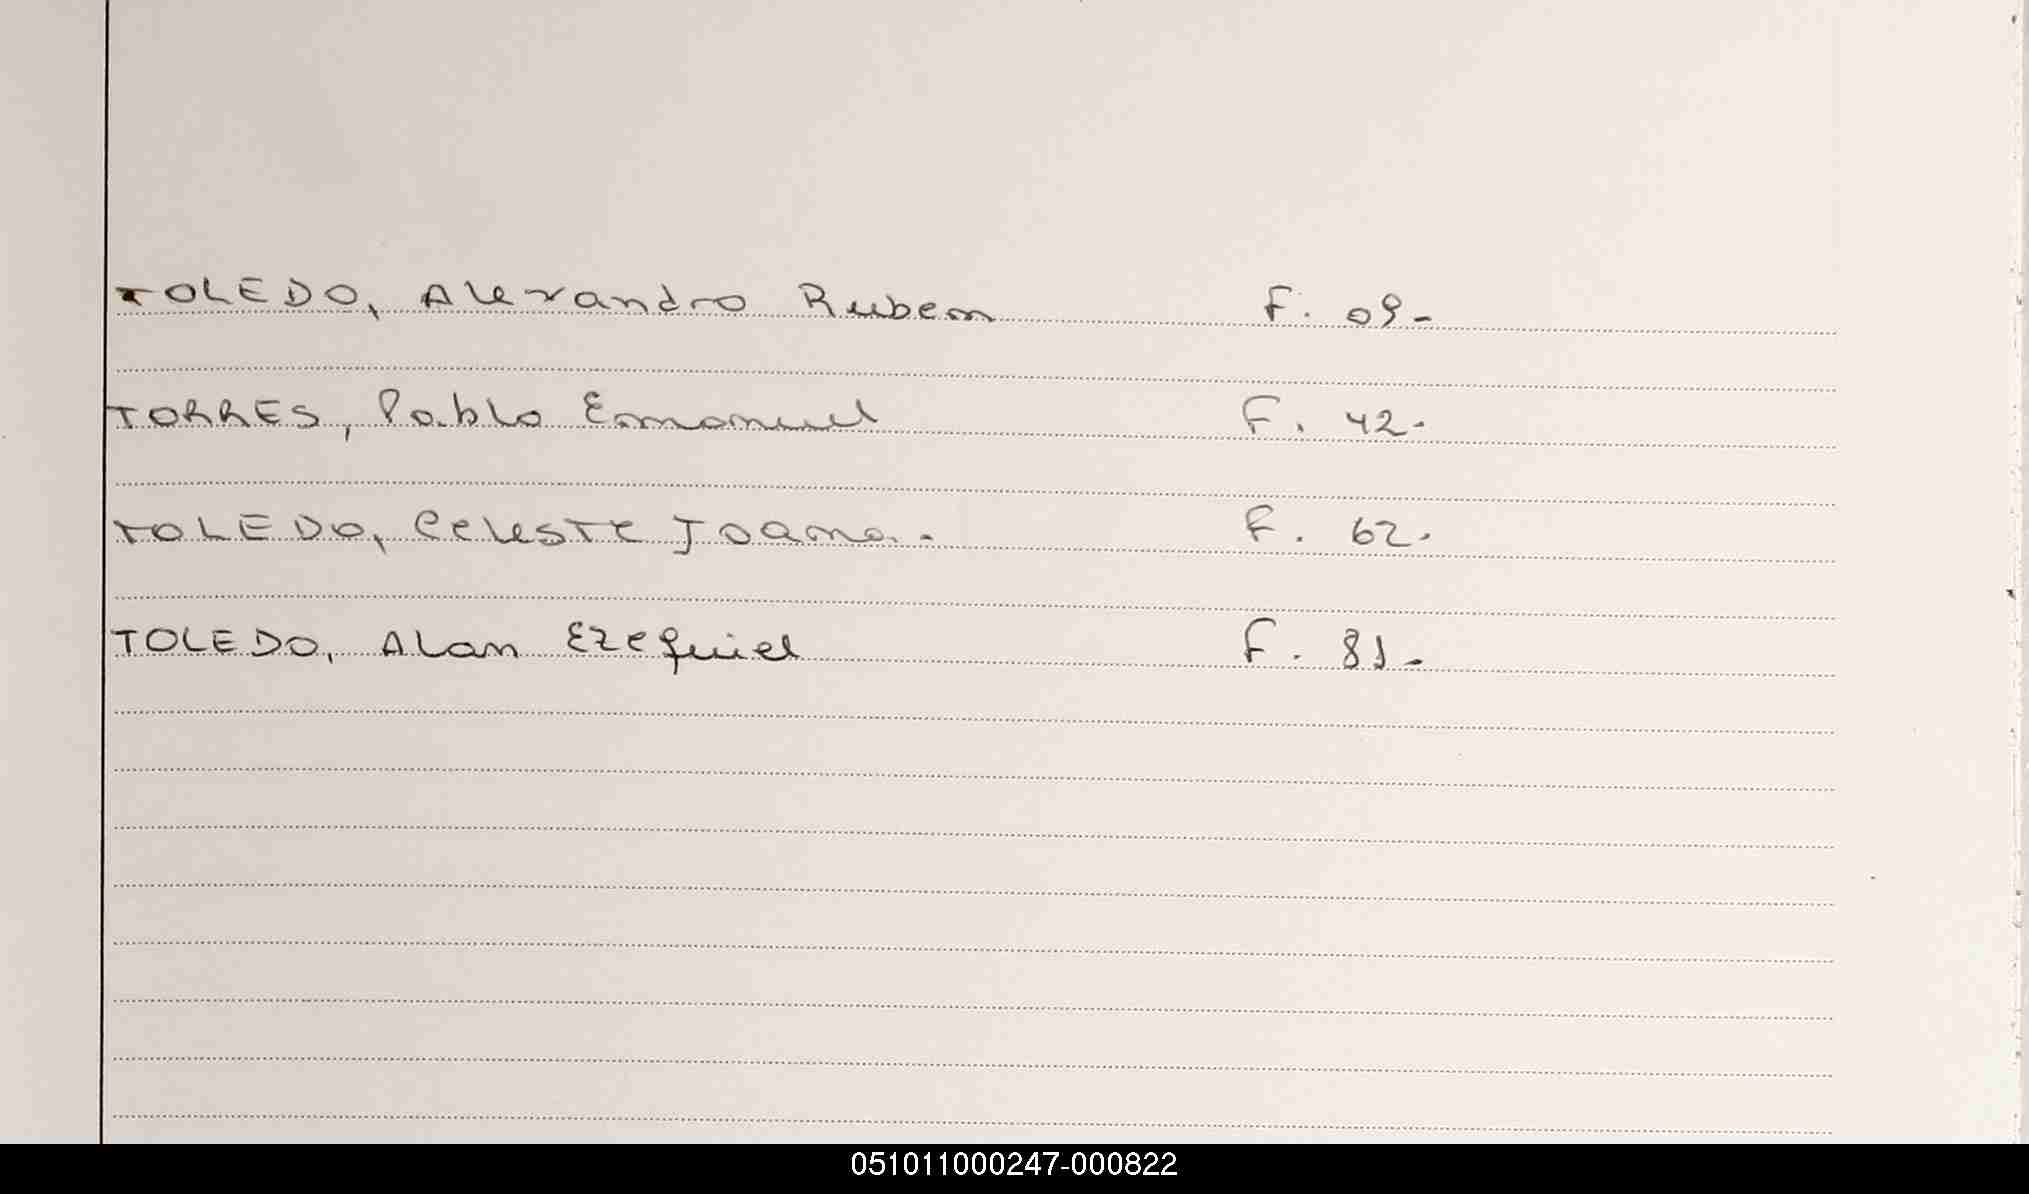 TOLEDO, Alexandro Ruben F. 09-
TORRES, Pablo Emanuel F. 42.
TOLEDO, Celeste Joana.. F. 62.
TOLEDO, Alan Ezequiel F. 81-
051011000247-000822